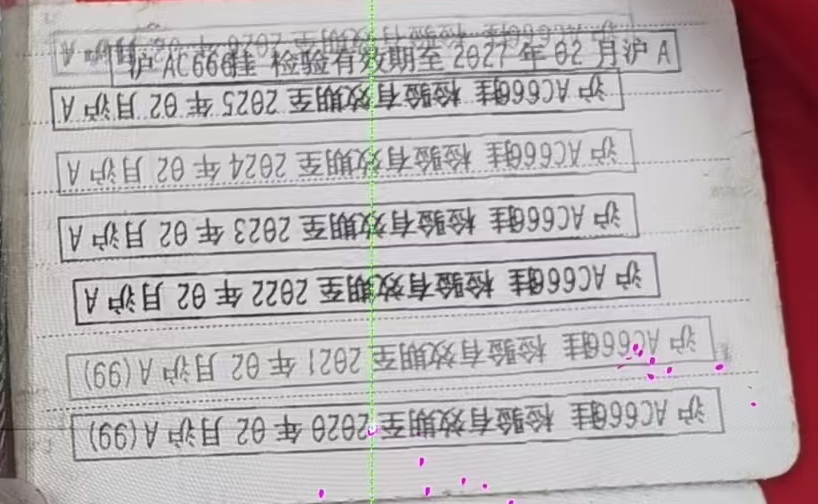 沪AC660挂 检验有效期至 2026 年 02 月沪A
沪AC660挂 检验有效期至 2027 年 02 月沪A
沪AC660挂 检验有效期至 2025 年 02 月沪A
沪AC660挂 检验有效期至 2024 年 02 月沪A
沪AC660挂 检验有效期至 2023 年 02 月沪A
沪AC660挂 检验有效期至 2022 年 02 月沪A
沪AC660挂 检验有效期至 2021 年 02 月沪A(99)
沪AC660挂 检验有效期至 2020 年 02 月沪A(99)